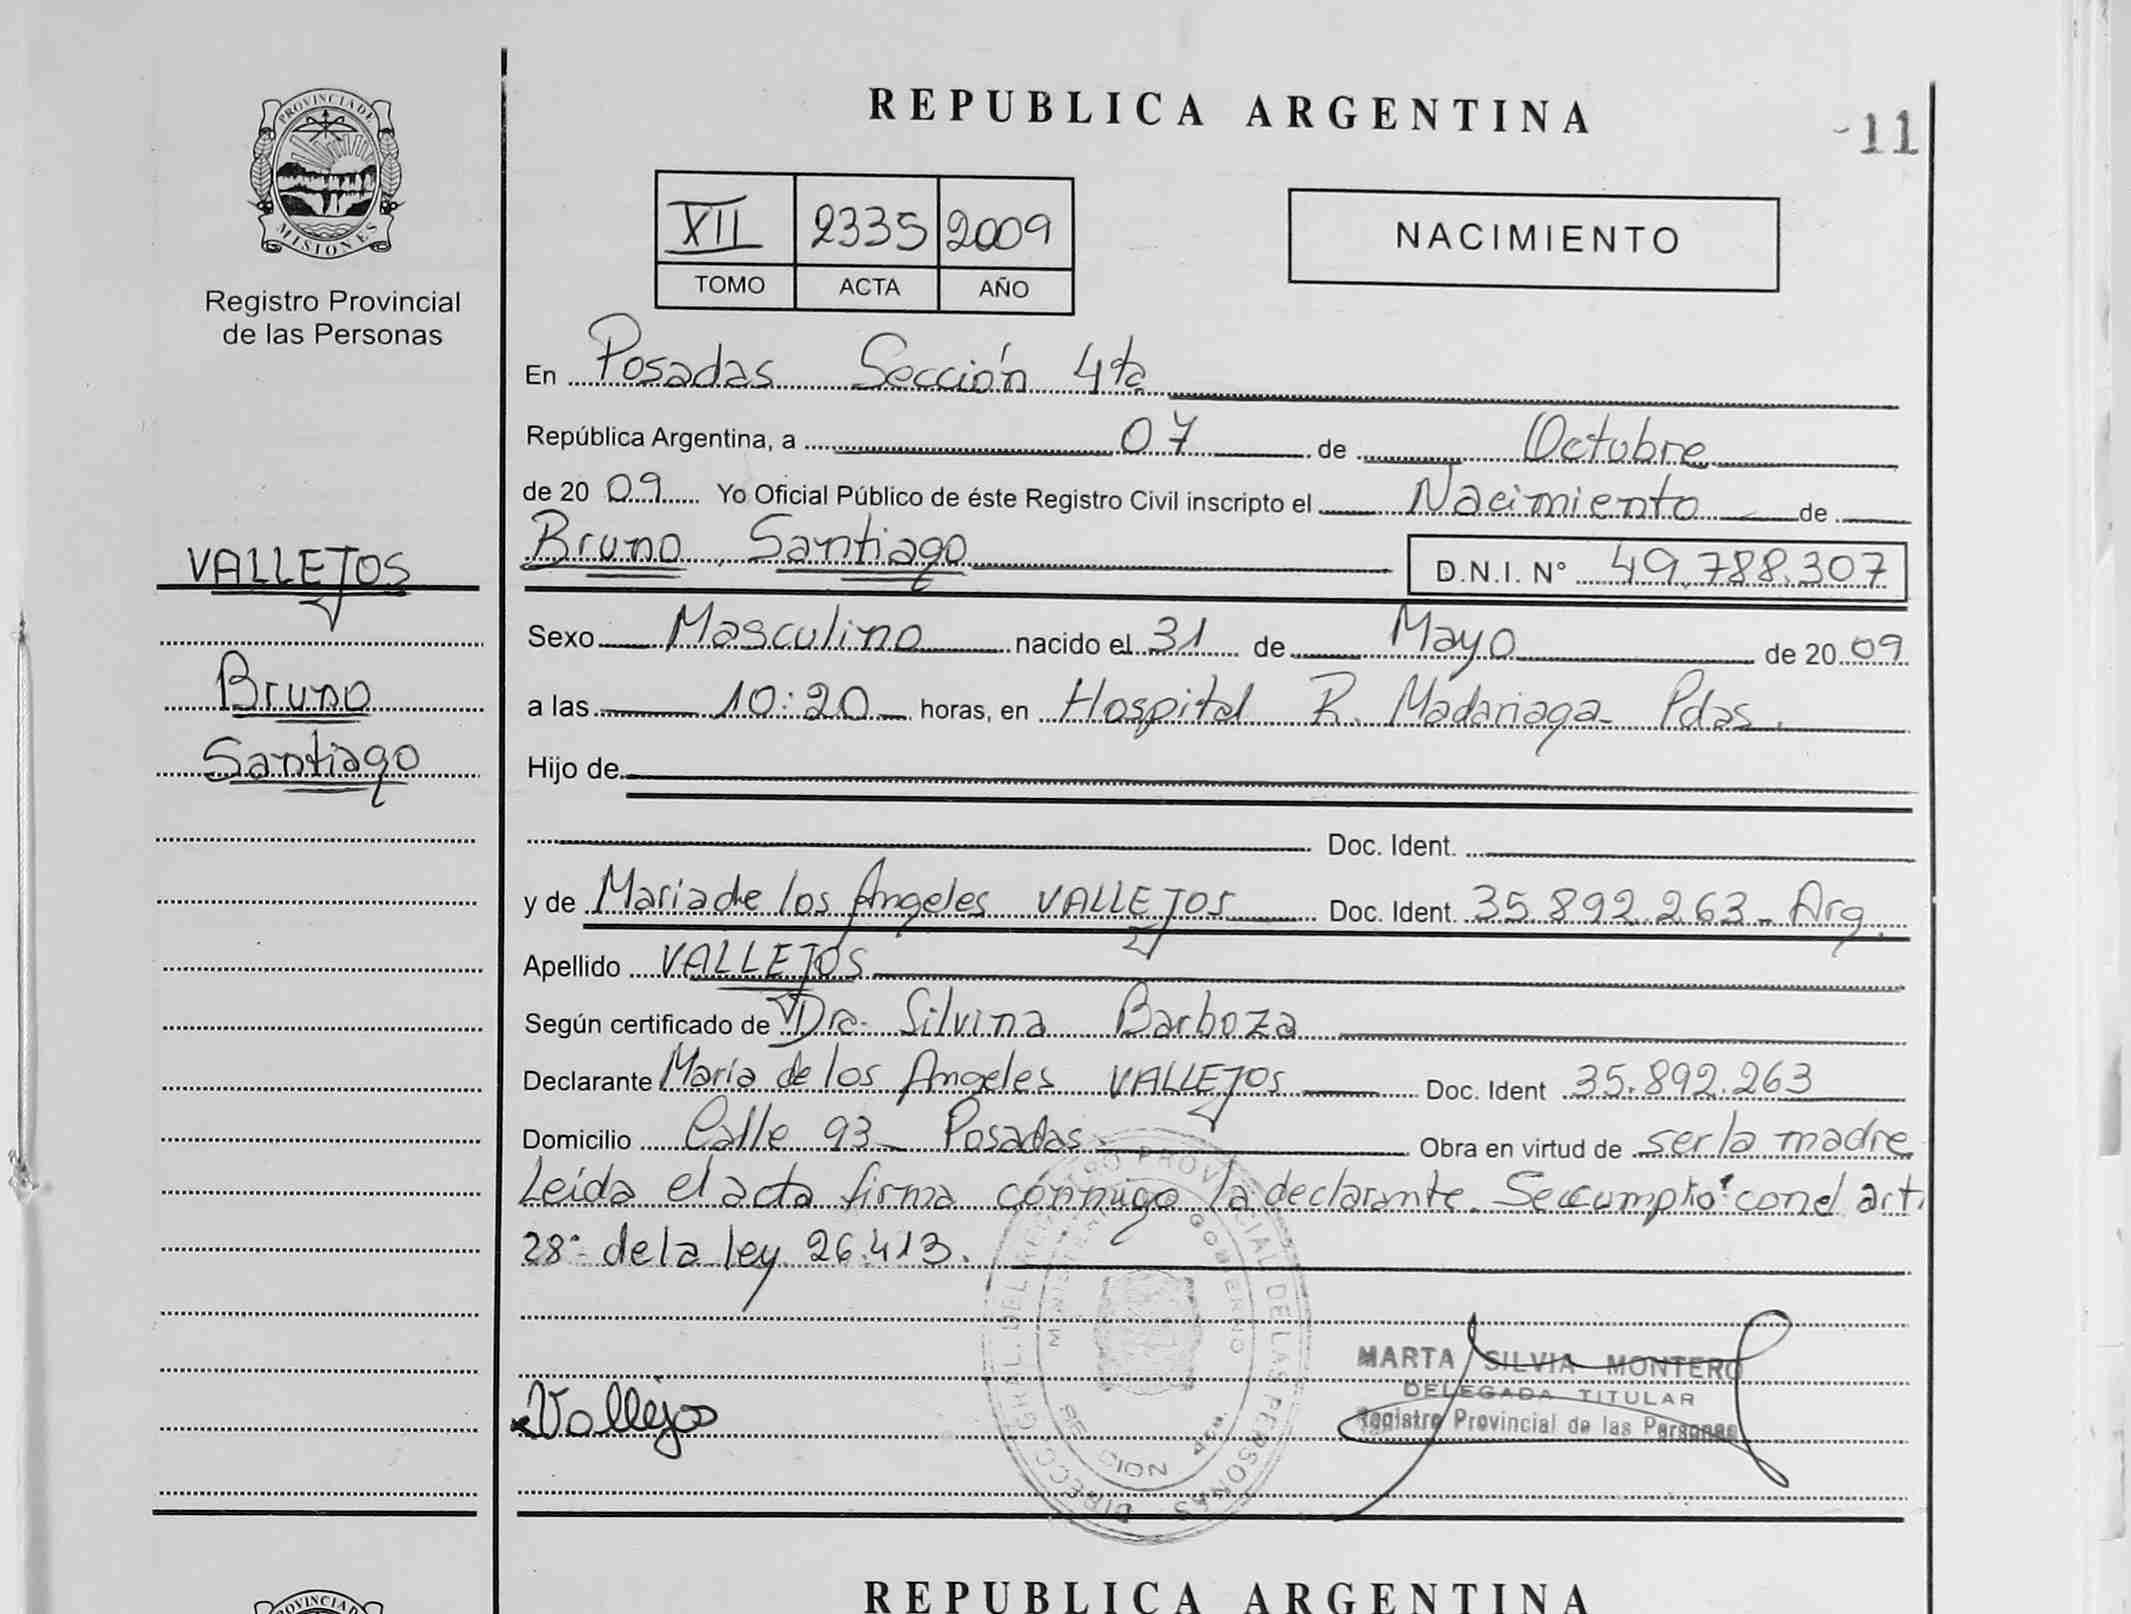 REPUBLICA ARGENTINA
-11
PROVINCIA DE
MISIONES
Registro Provincial
de las Personas
XII 2335 2009
TOMO ACTA AÑO
NACIMIENTO
En Posadas Sección 4ta
República Argentina, a 07 de Octubre
de 20 09 Yo Oficial Público de éste Registro Civil inscripto el Nacimiento de
VALLEJOS
Bruno
Santiago
Bruno Santiago D.N.I. N° 49.788.307
Sexo Masculino nacido el 31 de Mayo de 20 09
a las 10:20 horas, en Hospital R. Madariaga Pdas.
Hijo de
Doc. Ident.
y de Maria de los Angeles VALLEJOS Doc. Ident. 35.892.263 - Arg.
Apellido VALLEJOS
Según certificado de Dra. Silvina Barboza
Declarante María de los Angeles VALLEJOS Doc. Ident 35.892.263
Domicilio Calle 93 - Posadas Obra en virtud de ser la madre
Leída el acta firma conmigo la declarante. Se cumplió con el art.
28° de la ley 26.413.
DEL REGISTRO PROVINCIAL DE LAS PERSONAS
GOBIERNO
MARTA SILVIA MONTERO
DELEGADA TITULAR
Registro Provincial de las Personas
Vallejos
REPUBLICA ARGENTINA